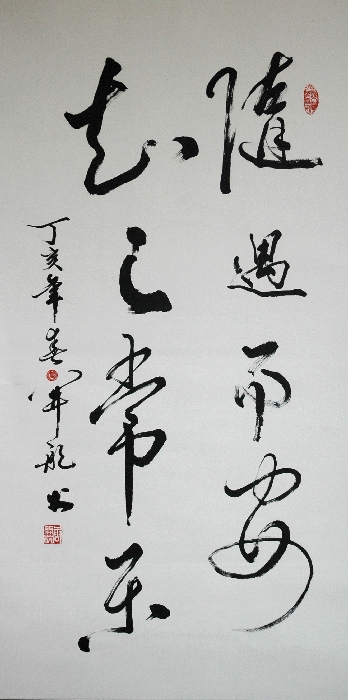 随遇而安
知足常乐
丁亥年春 书